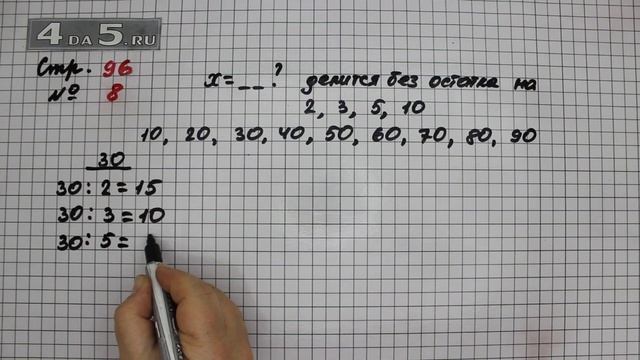 4 DA 5.RU
Стр. 96
№ 8
x = _ _ ? делится без остатка на
2, 3, 5, 10
10, 20, 30, 40, 50, 60, 70, 80, 90
30
30 : 2 = 15
30 : 3 = 10
30 : 5 =